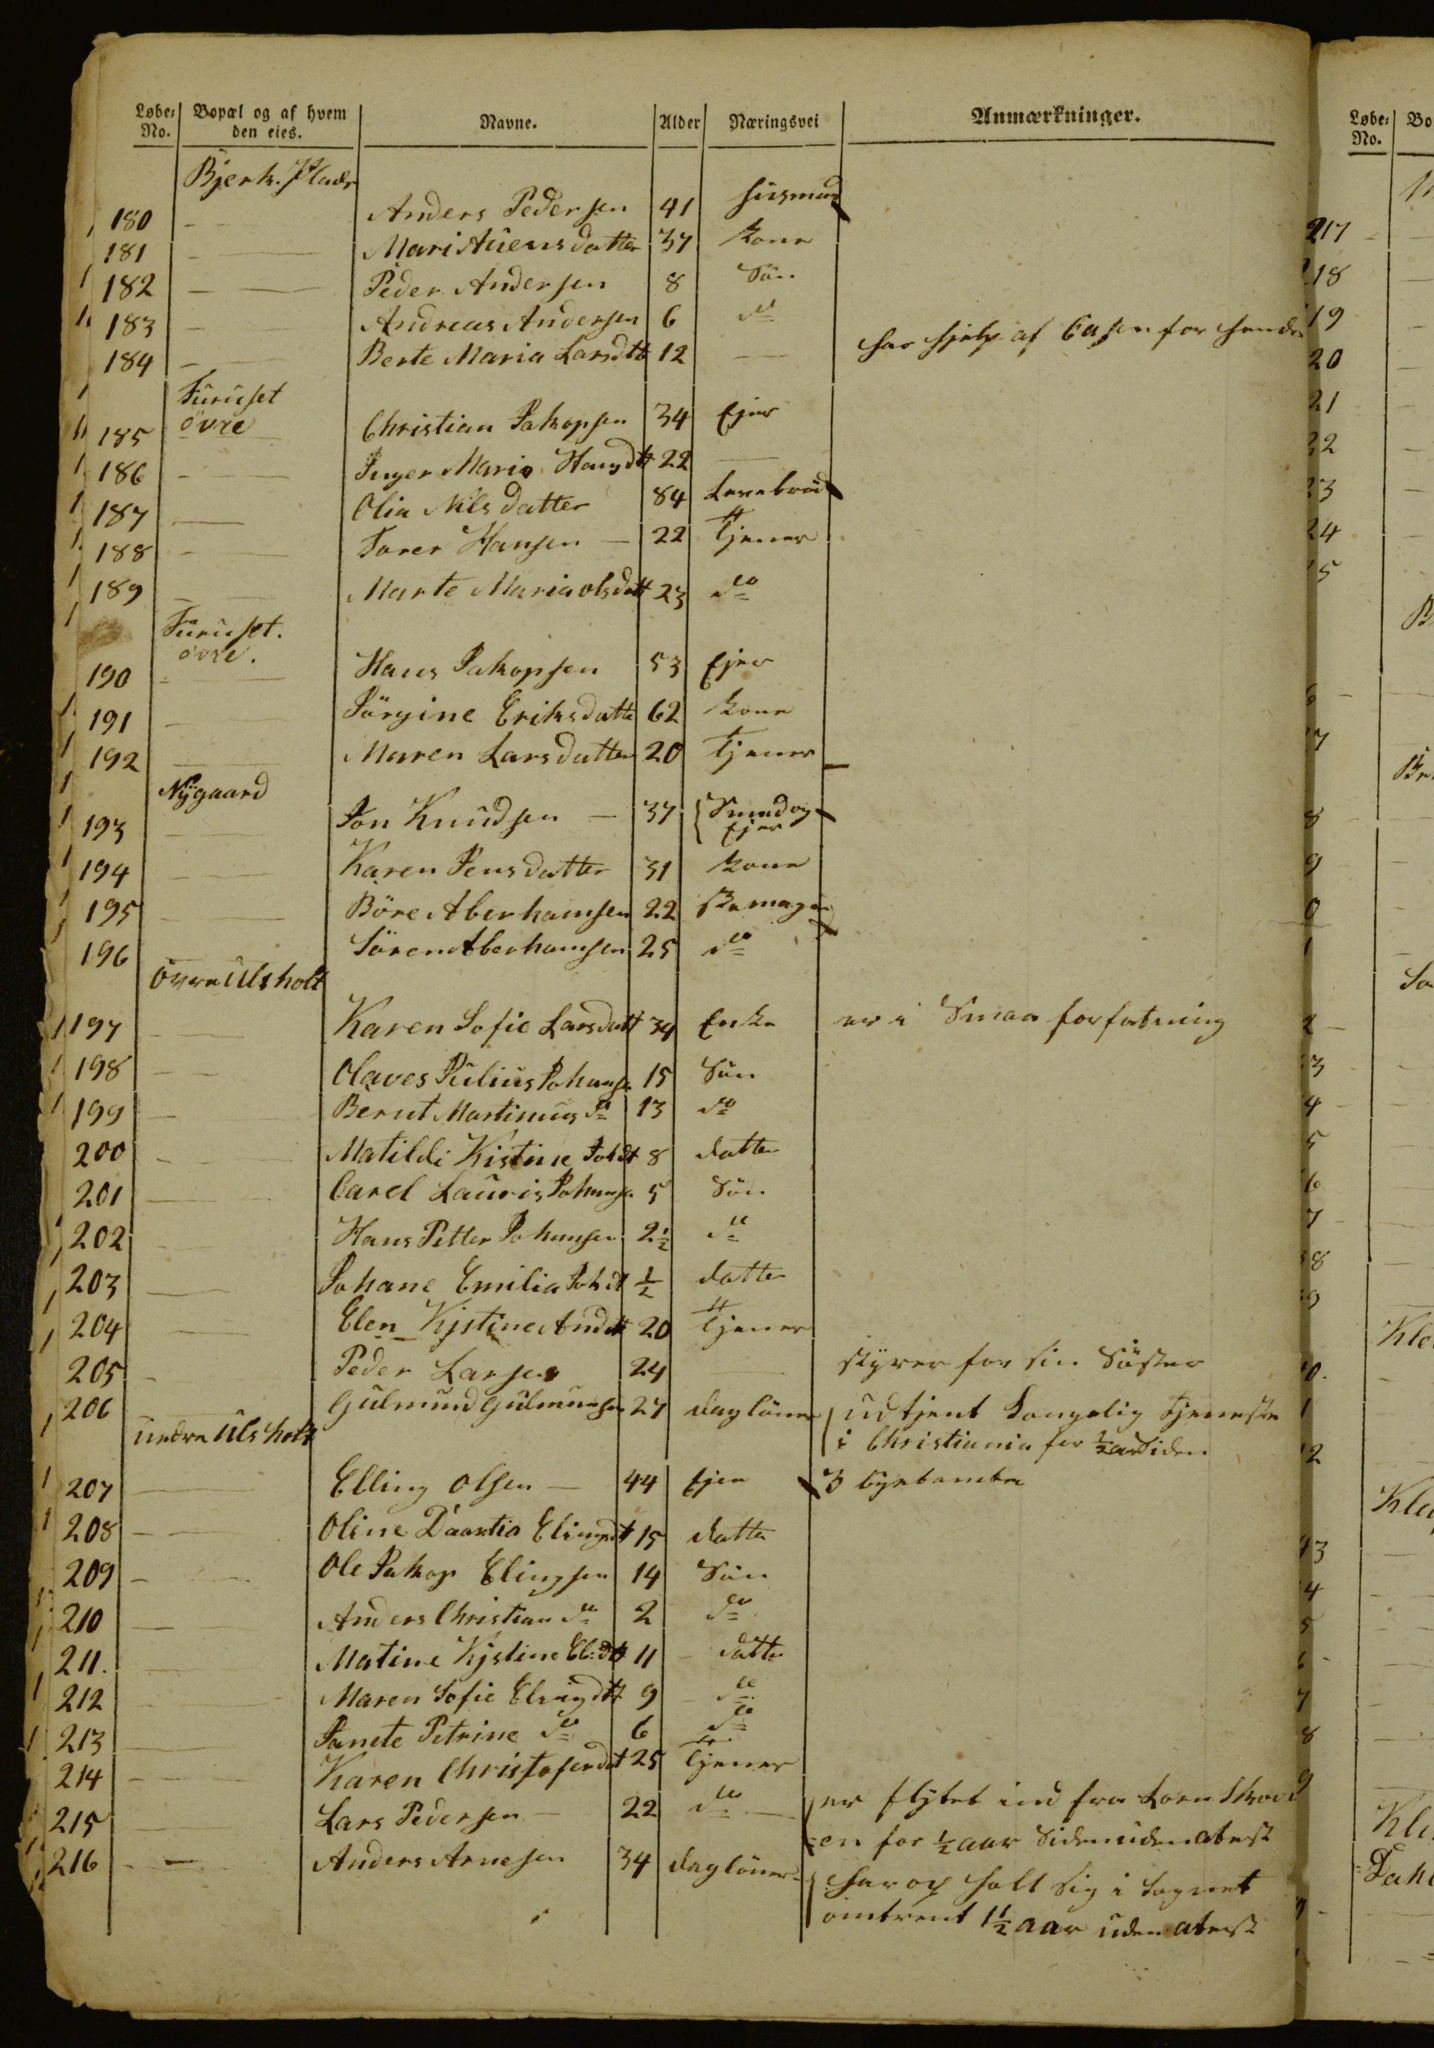 Løbe- No. Bopæl og af hvem den eies. Navne. Alder Næringsvei Anmærkninger.
Bjerk. Plads
180 - Anders Pedersen 41 Husmand
181 - Mari Auensdatter 37 kone
182 - Peder Andersen 8 Sön
183 - Andreas Andersen 6 do
184 - Berte Maria Larsdtt 12 - har hjelp af Casen for hende
Furuset
185 övre Christian Jakopsen 34 Ejer
186 - Inger Maria Hansdtt 22 -
187 - Olia Nilsdatter 84 Levebröd
188 - Torer Hansen - 22 Tjener
189 - Marte Maria olsdatt 23 do
Furuset.
övre.
190 - Hans Jakopsen 53 Ejer
191 - Jörgine Eriksdatte 62 kone
192 - Maren Larsdatter 20 Tjener
Nÿgaard
193 - Jon Knudsen - 37 Smed og
Ejer
194 - Karen Jensdatter 31 kone
195 - Böre Aberhamsen 22 Skomager
196 - Sören Aberhamsen 25 do
övre Ulsholt
197 - Karen Sofie Larsdatt 34 Enke er i Smaa forfatning
198 - Olaves Julius Johansen 15 Sön
199 - Bernt Martinus do 13 do
200 - Matilde Kistine Johdt 8 datter
201 - Carel Lauris Johansen 5 Sön
202 - Hans Petter Johansen 2½ do
203 - Johane Emilia Johdt ½ datter
204 - Elen Kjstine Andtt 20 Tjener
205 - Peder Larsen 24 - styrer for sin Söster
206 Gulmund Gulmunsen 27 daglöner udtjent Kongelig Tjeneste
nedre Ulsholt i Christiania for ½ aar Siden
207 - Elling olsen - 44 Ejer
208 - Oline Daartia Elingsdt 15 datter
209 - Ole Jakop Elingsen 14 Sön
210 - Anders Christian do 2 do
211. - Matine Kjstine Elidtt 11 datter
212 - Maren Sofie Elingdtt 9 do
213 - Janete Petrine do 6 do
214 - Karen Christofersdt 25 Tjener
215 - Lars Pedersen - 22 do - er flÿtet ind fra
en for ½ aar Siden uden atest
216 - Anders Arnesen 34 daglöner har op holt sig i Sognet
omtrent 1½ aar uden atest
Løbe- No. Bo
217
218